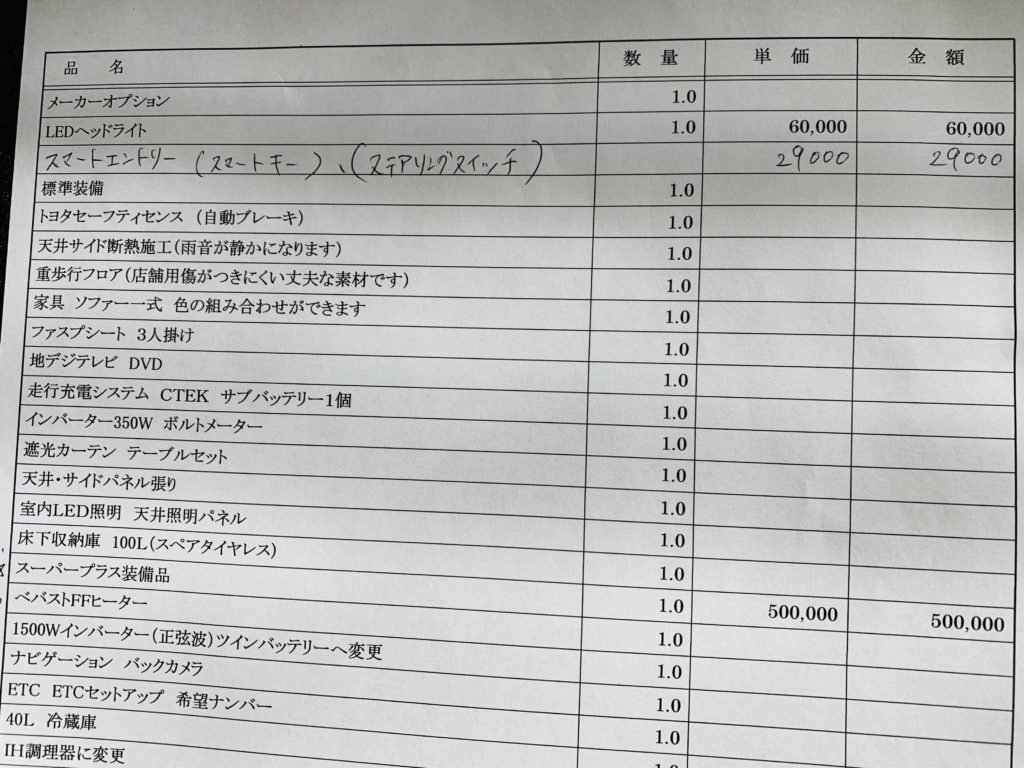 品 名 数 量 単 価 金 額
メーカーオプション 1.0
LEDヘッドライト 1.0 60,000 60,000
スマートエントリー (スマートキー)、(ステアリングスイッチ) 29000 29000
標準装備 1.0
トヨタセーフティセンス (自動ブレーキ) 1.0
天井サイド断熱施工(雨音が静かになります) 1.0
重歩行フロア(店舗用傷がつきにくい丈夫な素材です) 1.0
家具 ソファー一式 色の組み合わせができます 1.0
ファスプシート 3人掛け 1.0
地デジテレビ DVD 1.0
走行充電システム CTEK サブバッテリー1個 1.0
インバーター350W ボルトメーター 1.0
遮光カーテン テーブルセット 1.0
天井・サイドパネル張り 1.0
室内LED照明 天井照明パネル 1.0
床下収納庫 100L(スペアタイヤレス) 1.0
スーパープラス装備品 1.0 500,000 500,000
ベバストFFヒーター 1.0
1500Wインバーター(正弦波)ツインバッテリーへ変更 1.0
ナビゲーション バックカメラ 1.0
ETC ETCセットアップ 希望ナンバー 1.0
40L 冷蔵庫
IH調理器に変更